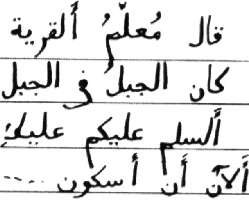 قال مُعلّمُ أَلقرية
كان الجبلُ في الجبل
أَلسلم عليكم عليكم
أَلآنَ أَن أَسكون ....